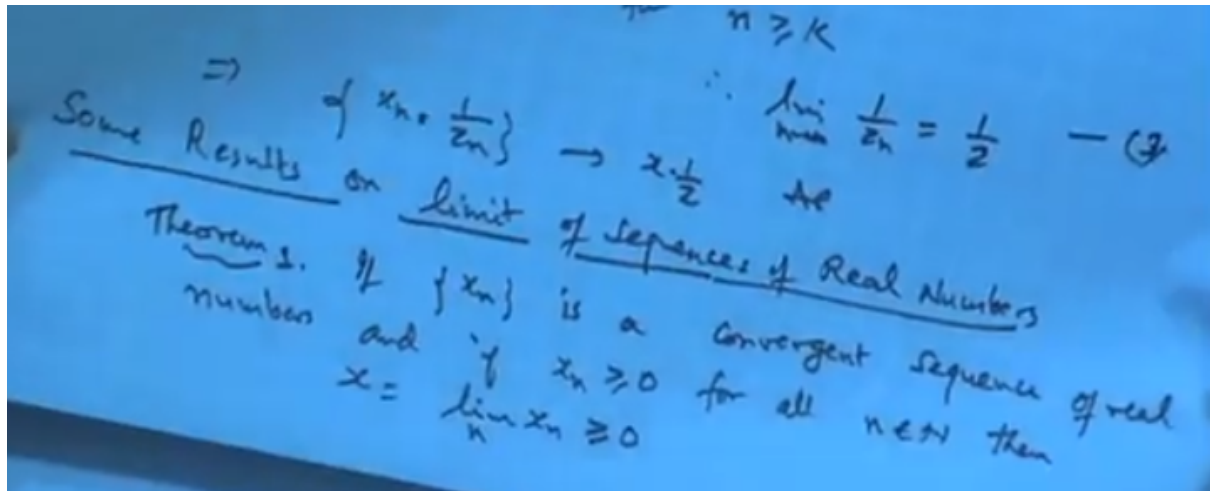 n ≥ K
∴ lim n→∞ 1/zn = 1/z — (3)
⇒ { xn · 1/zn } → x · 1/z
Some Results on limit of sequences of Real Numbers
Theorem 1. If {xn} is a convergent sequence of real
numbers and if xn ≥ 0 for all n ∈ N then
x = lim n xn ≥ 0